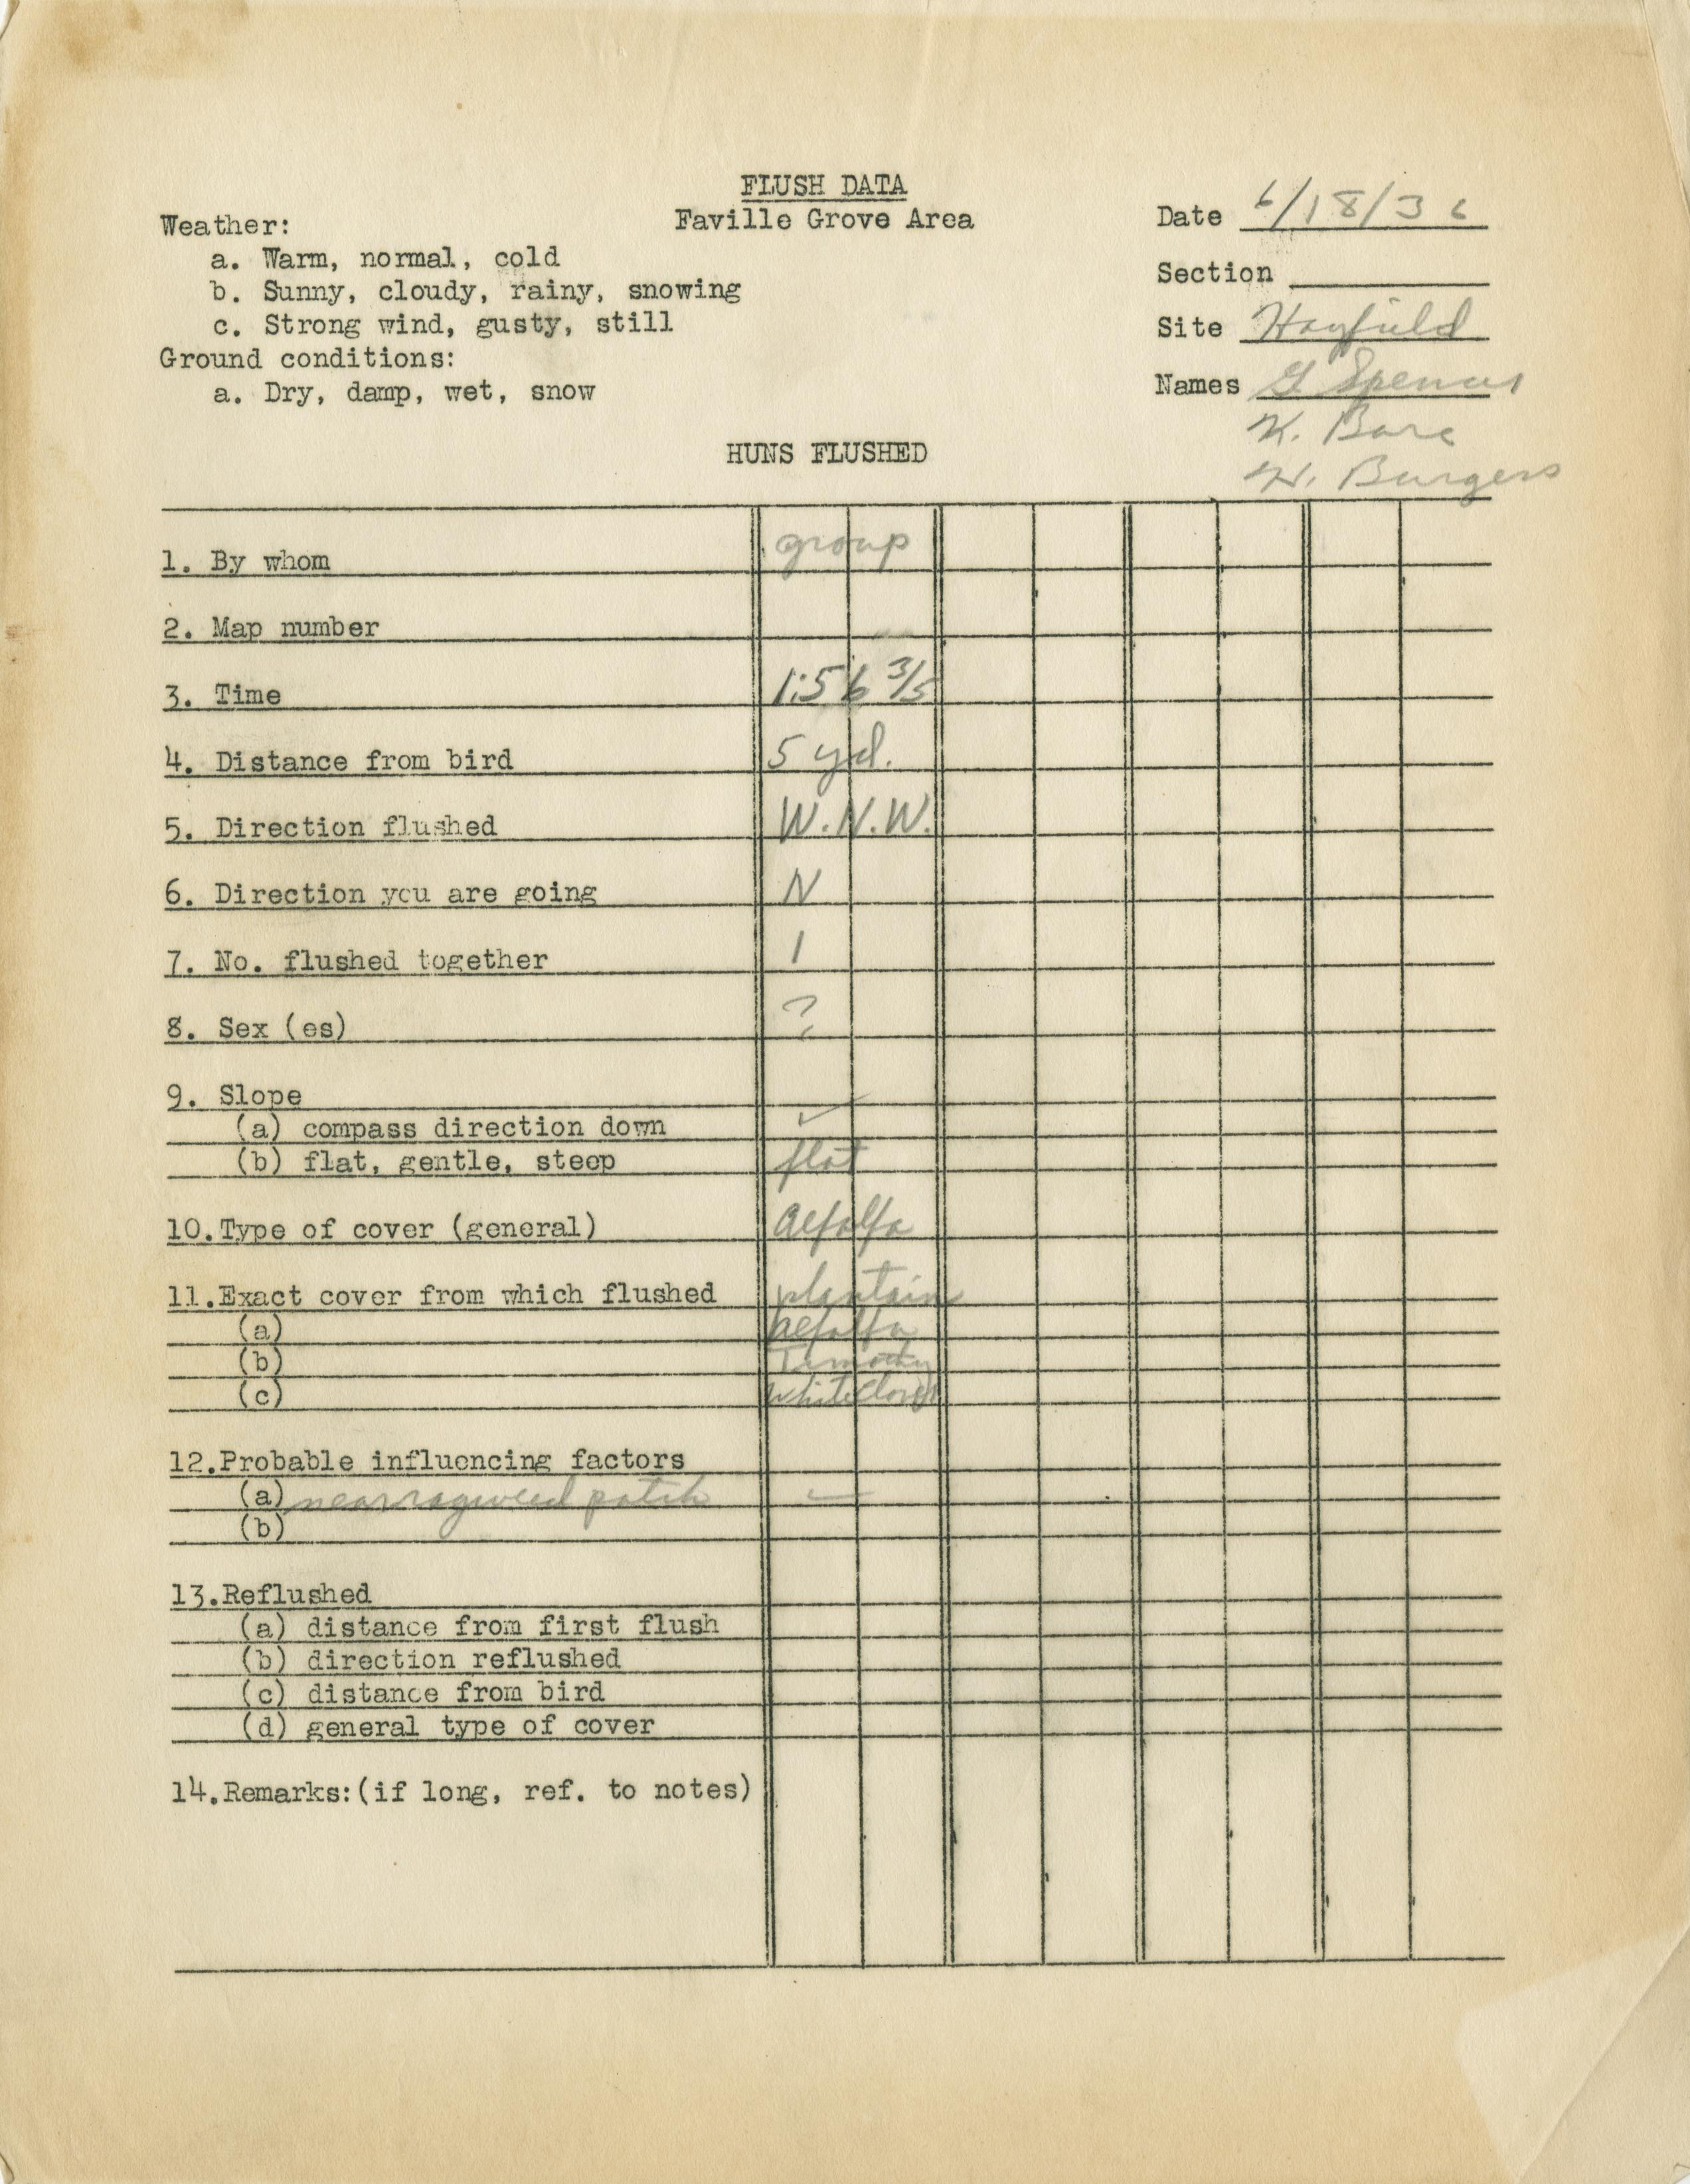 FLUSH DATA
Faville Grove Area
Weather:
a. Warm, normal, cold
b. Sunny, cloudy, rainy, snowing
c. Strong wind, gusty, still
Ground conditions:
a. Dry, damp, wet, snow
Date 6/18/36
Section
Site Hayfield
Names G Spencer
K.
W. Burgers
HUNS FLUSHED
1. By whom group
2. Map number
3. Time 1:56 3/5
4. Distance from bird 5 yd.
5. Direction flushed W.N.W.
6. Direction you are going N
7. No. flushed together 1
8. Sex (es) ?
9. Slope
(a) compass direction down ✓
(b) flat, gentle, steep flat
10.Type of cover (general) alfalfa
11.Exact cover from which flushed plantain
(a) alfalfa
(b) Timothy
(c) white clover
12.Probable influencing factors
(a) near ragweed patch –
(b)
13.Reflushed
(a) distance from first flush
(b) direction reflushed
(c) distance from bird
(d) general type of cover
14.Remarks:(if long, ref. to notes)